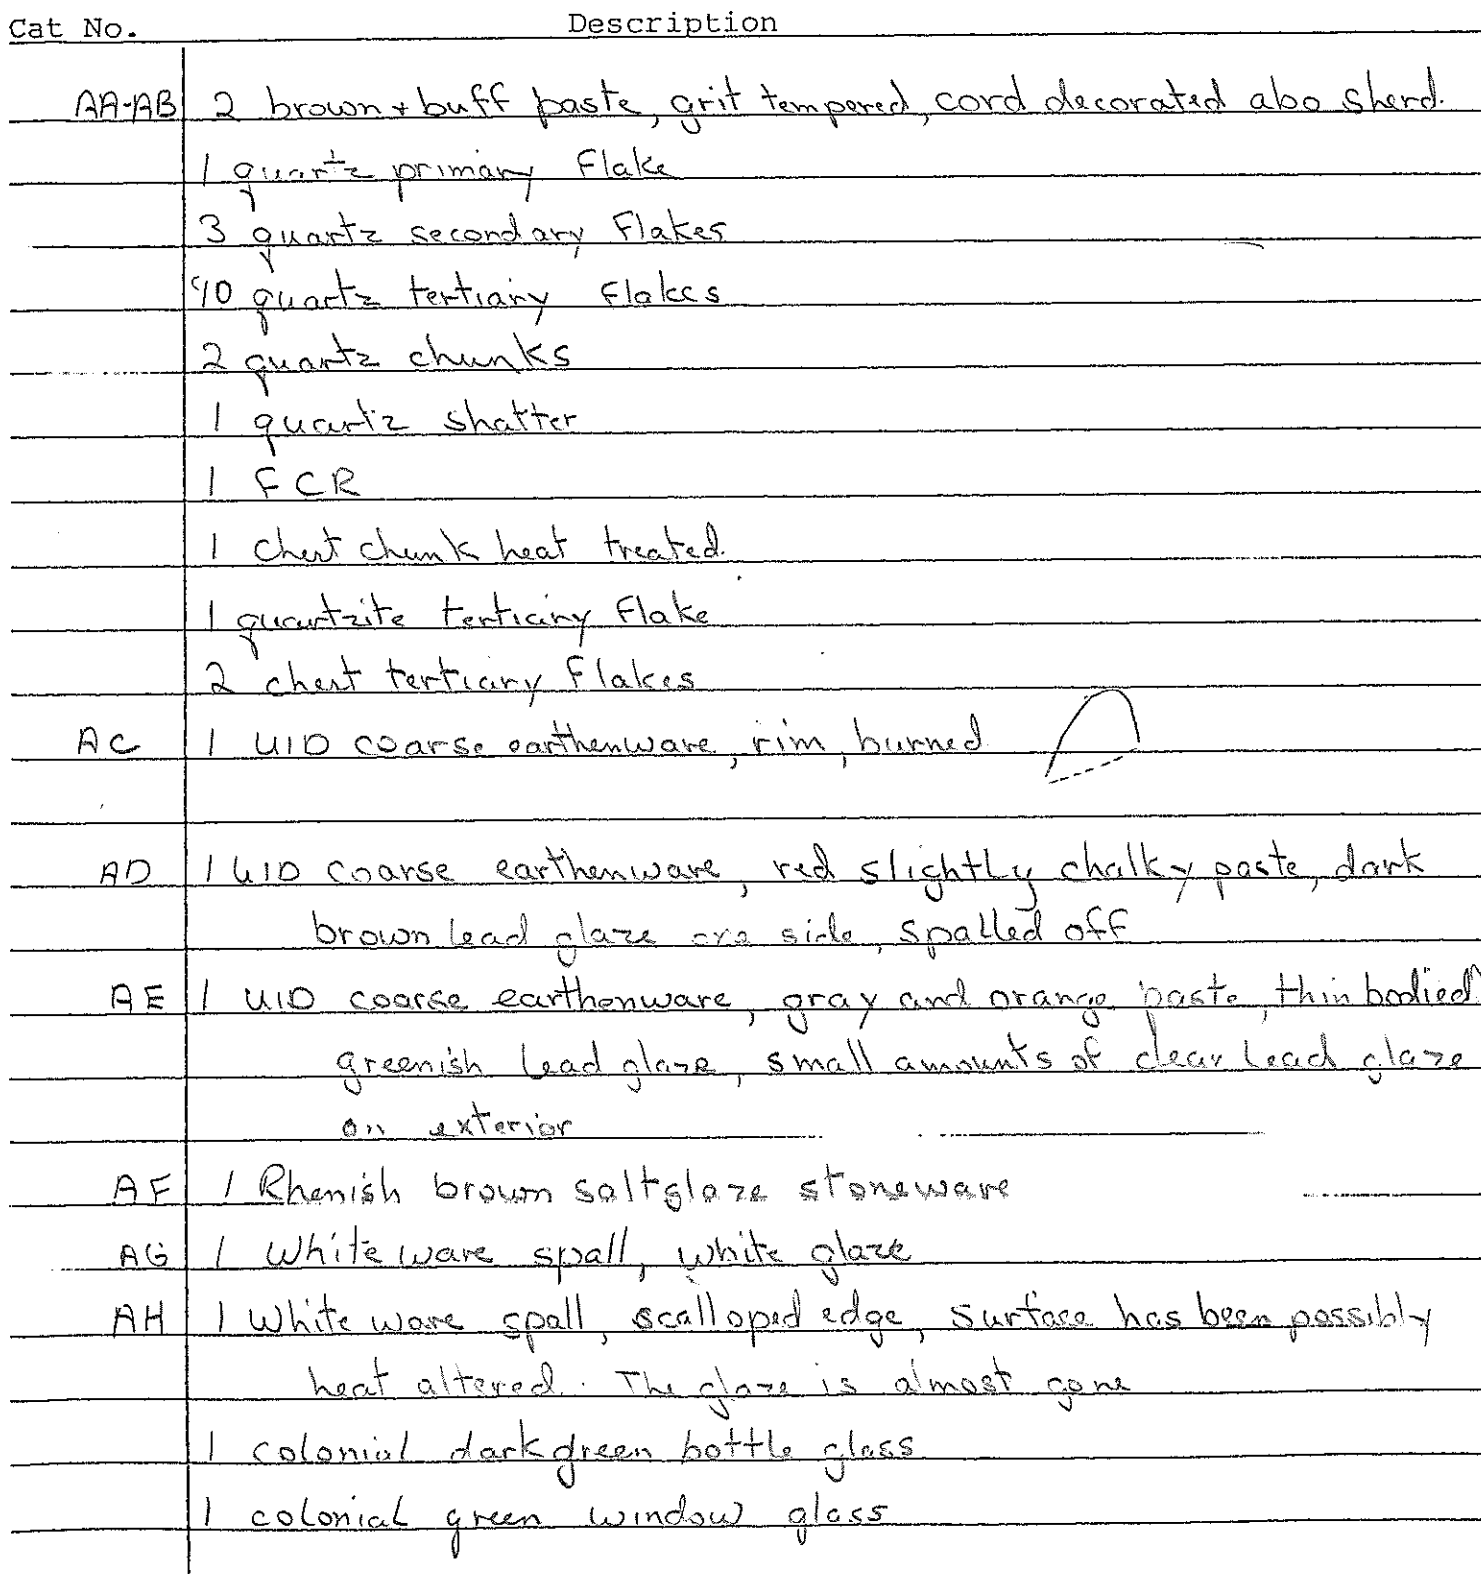 Cat No. Description
AA-AB 2 brown + buff paste, grit tempered, cord decorated abo sherd.
1 quartz primary flake
3 quartz secondary flakes
10 quartz tertiary flakes
2 quartz chunks
1 quartz shatter
1 FCR
1 chert chunk heat treated.
1 quartzite tertiary flake
2 chert tertiary flakes
AC 1 UID coarse earthenware, rim, burned
AD 1 UID coarse earthenware, red slightly chalky paste, dark
brown lead glaze one side, spalled off
AE 1 UID coarse earthenware, gray and orange paste, thin bodied
greenish lead glaze, small amounts of clear lead glaze
on exterior
AF 1 Rhenish brown saltglaze stoneware
AG 1 White ware spall, white glaze
AH 1 White ware spall, scalloped edge, surface has been possibly
heat altered. The glaze is almost gone
1 colonial dark green bottle glass
1 colonial green window glass